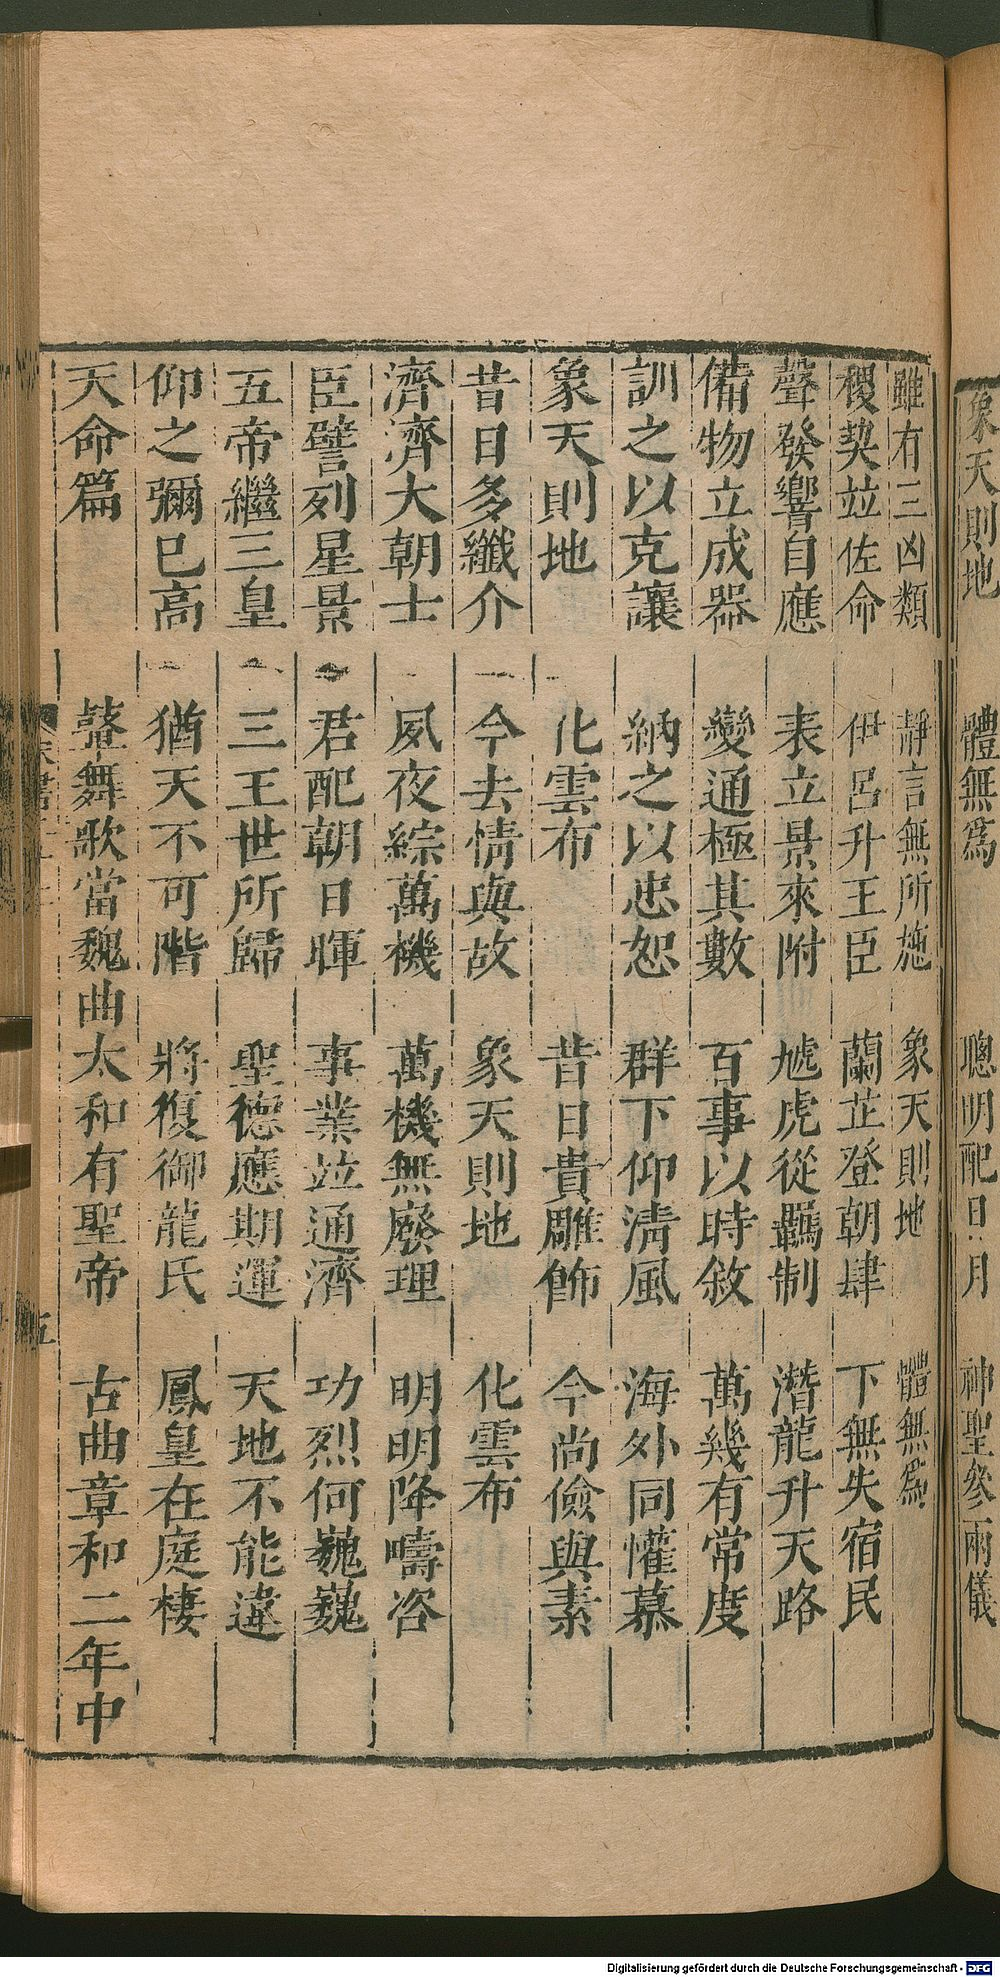 象天則地　體無爲　聰明配日月　神聖參兩儀
雖有三凶類　靜言無所施　象天則地　體無爲
稷契竝佐命　伊呂升王臣　蘭芷登朝肆　下無失宿民
聲發響自應　表立景來附　虓虎從羈制　潛龍升天路
備物立成器　變通極其數　百事以時敘　萬幾有常度
訓之以克讓　納之以忠恕　群下仰清風　海外同懽慕
象天則地　化雲布　昔日貴雕飾　今尚儉與素
昔日多纖介　今去情與故　象天則地　化雲布
濟濟大朝士　夙夜綜萬機　萬機無廢理　明明降疇咨
臣譬列星景　君配朝日暉　事業竝通濟　功烈何巍巍
五帝繼三皇　三王世所歸　聖德應期運　天地不能違
仰之彌已高　猶天不可階　將復御龍氏　鳳皇在庭棲
天命篇　鼙舞歌當魏曲太和有聖帝　古曲章和二年中
五
Digitalisierung gefördert durch die Deutsche Forschungsgemeinschaft - DFG